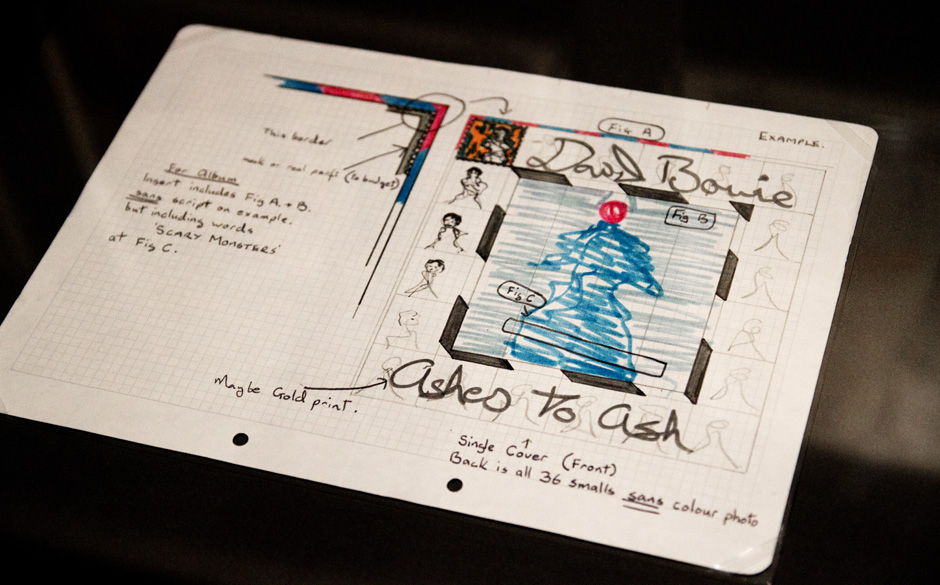 This border
mock or real passp't (to budget)
For Album
Insert includes Fig A. + B.
sans script on example.
but including words
'SCARY MONSTERS'
at Fig C.
Fig A
EXAMPLE.
David Bowie
Fig B
Fig C
Maybe Gold print.
Ashes To Ash
Single Cover (Front)
Back is all 36 smalls sans colour photo